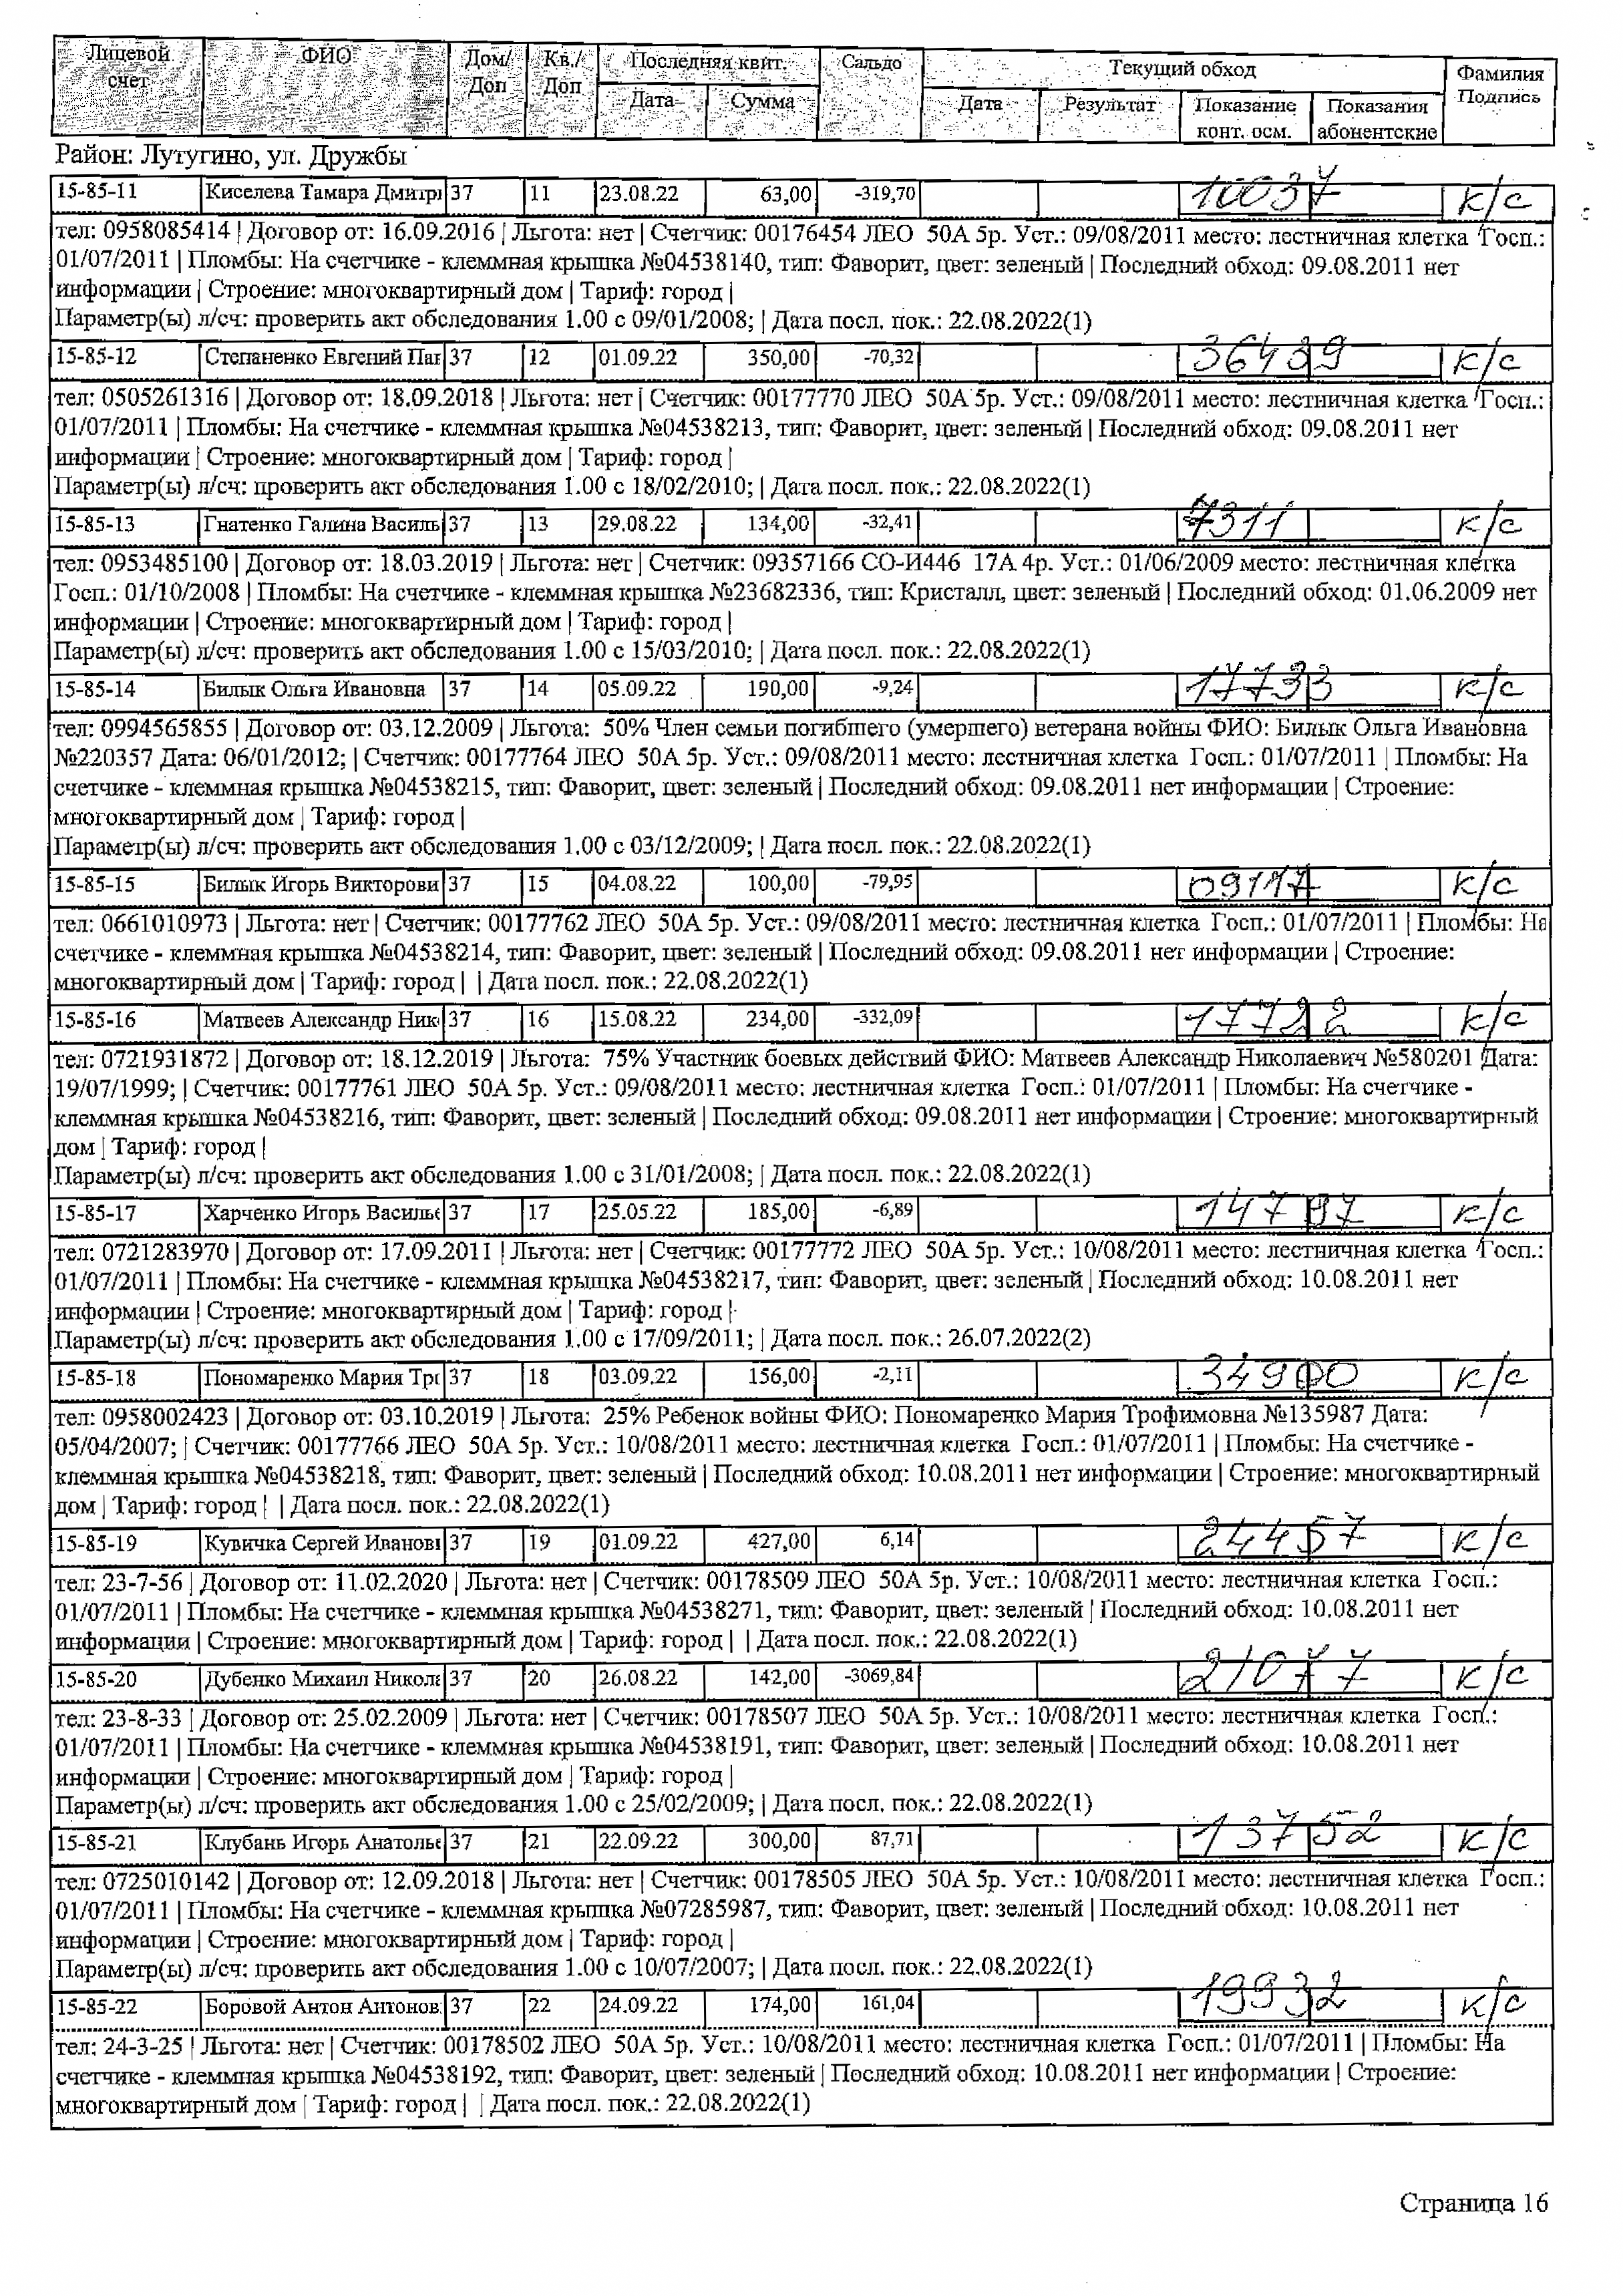 Лицевой счет ФИО Дом/ Доп Кв./ Доп Последняя квит. Дата Сумма Сальдо Текущий обход Дата Результат Показание конт. осм. Показания абонентские Фамилия Подпись
Район: Лутугино, ул. Дружбы
15-85-11 Киселева Тамара Дмитри 37 11 23.08.22 63,00 -319,70 10037 к/с
тел: 0958085414 | Договор от: 16.09.2016 | Льгота: нет | Счетчик: 00176454 ЛЕО 50А 5р. Уст.: 09/08/2011 место: лестничная клетка Госп.:
01/07/2011 | Пломбы: На счетчике - клеммная крышка №04538140, тип: Фаворит, цвет: зеленый | Последний обход: 09.08.2011 нет
информации | Строение: многоквартирный дом | Тариф: город |
Параметр(ы) л/сч: проверить акт обследования 1.00 с 09/01/2008; | Дата посл. пок.: 22.08.2022(1)
15-85-12 Степаненко Евгений Пав 37 12 01.09.22 350,00 -70,32 36439 к/с
тел: 0505261316 | Договор от: 18.09.2018 | Льгота: нет | Счетчик: 00177770 ЛЕО 50А 5р. Уст.: 09/08/2011 место: лестничная клетка Госп.:
01/07/2011 | Пломбы: На счетчике - клеммная крышка №04538213, тип: Фаворит, цвет: зеленый | Последний обход: 09.08.2011 нет
информации | Строение: многоквартирный дом | Тариф: город |
Параметр(ы) л/сч: проверить акт обследования 1.00 с 18/02/2010; | Дата посл. пок.: 22.08.2022(1)
15-85-13 Гнатенко Галина Василь 37 13 29.08.22 134,00 -32,41 7311 к/с
тел: 0953485100 | Договор от: 18.03.2019 | Льгота: нет | Счетчик: 09357166 СО-И446 17А 4р. Уст.: 01/06/2009 место: лестничная клетка
Госп.: 01/10/2008 | Пломбы: На счетчике - клеммная крышка №23682336, тип: Кристалл, цвет: зеленый | Последний обход: 01.06.2009 нет
информации | Строение: многоквартирный дом | Тариф: город |
Параметр(ы) л/сч: проверить акт обследования 1.00 с 15/03/2010; | Дата посл. пок.: 22.08.2022(1)
15-85-14 Билык Ольга Ивановна 37 14 05.09.22 190,00 -9,24 17733 к/с
тел: 0994565855 | Договор от: 03.12.2009 | Льгота: 50% Член семьи погибшего (умершего) ветерана войны ФИО: Билык Ольга Ивановна
№220357 Дата: 06/01/2012; | Счетчик: 00177764 ЛЕО 50А 5р. Уст.: 09/08/2011 место: лестничная клетка Госп.: 01/07/2011 | Пломбы: На
счетчике - клеммная крышка №04538215, тип: Фаворит, цвет: зеленый | Последний обход: 09.08.2011 нет информации | Строение:
многоквартирный дом | Тариф: город |
Параметр(ы) л/сч: проверить акт обследования 1.00 с 03/12/2009; | Дата посл. пок.: 22.08.2022(1)
15-85-15 Билык Игорь Викторови 37 15 04.08.22 100,00 -79,95 09117 к/с
тел: 0661010973 | Льгота: нет | Счетчик: 00177762 ЛЕО 50А 5р. Уст.: 09/08/2011 место: лестничная клетка Госп.: 01/07/2011 | Пломбы: На
счетчике - клеммная крышка №04538214, тип: Фаворит, цвет: зеленый | Последний обход: 09.08.2011 нет информации | Строение:
многоквартирный дом | Тариф: город | | Дата посл. пок.: 22.08.2022(1)
15-85-16 Матвеев Александр Ник 37 16 15.08.22 234,00 -332,09 17722 к/с
тел: 0721931872 | Договор от: 18.12.2019 | Льгота: 75% Участник боевых действий ФИО: Матвеев Александр Николаевич №580201 Дата:
19/07/1999; | Счетчик: 00177761 ЛЕО 50А 5р. Уст.: 09/08/2011 место: лестничная клетка Госп.: 01/07/2011 | Пломбы: На счетчике -
клеммная крышка №04538216, тип: Фаворит, цвет: зеленый | Последний обход: 09.08.2011 нет информации | Строение: многоквартирный
дом | Тариф: город |
Параметр(ы) л/сч: проверить акт обследования 1.00 с 31/01/2008; | Дата посл. пок.: 22.08.2022(1)
15-85-17 Харченко Игорь Василье 37 17 25.05.22 185,00 -6,89 14797 к/с
тел: 0721283970 | Договор от: 17.09.2011 | Льгота: нет | Счетчик: 00177772 ЛЕО 50А 5р. Уст.: 10/08/2011 место: лестничная клетка Госп.:
01/07/2011 | Пломбы: На счетчике - клеммная крышка №04538217, тип: Фаворит, цвет: зеленый | Последний обход: 10.08.2011 нет
информации | Строение: многоквартирный дом | Тариф: город |
Параметр(ы) л/сч: проверить акт обследования 1.00 с 17/09/2011; | Дата посл. пок.: 26.07.2022(2)
15-85-18 Пономаренко Мария Тро 37 18 03.09.22 156,00 -2,11 34900 к/с
тел: 0958002423 | Договор от: 03.10.2019 | Льгота: 25% Ребенок войны ФИО: Пономаренко Мария Трофимовна №135987 Дата:
05/04/2007; | Счетчик: 00177766 ЛЕО 50А 5р. Уст.: 10/08/2011 место: лестничная клетка Госп.: 01/07/2011 | Пломбы: На счетчике -
клеммная крышка №04538218, тип: Фаворит, цвет: зеленый | Последний обход: 10.08.2011 нет информации | Строение: многоквартирный
дом | Тариф: город | | Дата посл. пок.: 22.08.2022(1)
15-85-19 Кувичка Сергей Иванови 37 19 01.09.22 427,00 6,14 24457 к/с
тел: 23-7-56 | Договор от: 11.02.2020 | Льгота: нет | Счетчик: 00178509 ЛЕО 50А 5р. Уст.: 10/08/2011 место: лестничная клетка Госп.:
01/07/2011 | Пломбы: На счетчике - клеммная крышка №04538271, тип: Фаворит, цвет: зеленый | Последний обход: 10.08.2011 нет
информации | Строение: многоквартирный дом | Тариф: город | | Дата посл. пок.: 22.08.2022(1)
15-85-20 Дубенко Михаил Никола 37 20 26.08.22 142,00 -3069,84 21077 к/с
тел: 23-8-33 | Договор от: 25.02.2009 | Льгота: нет | Счетчик: 00178507 ЛЕО 50А 5р. Уст.: 10/08/2011 место: лестничная клетка Госп.:
01/07/2011 | Пломбы: На счетчике - клеммная крышка №04538191, тип: Фаворит, цвет: зеленый | Последний обход: 10.08.2011 нет
информации | Строение: многоквартирный дом | Тариф: город |
Параметр(ы) л/сч: проверить акт обследования 1.00 с 25/02/2009; | Дата посл. пок.: 22.08.2022(1)
15-85-21 Клубань Игорь Анатолье 37 21 22.09.22 300,00 87,71 13752 к/с
тел: 0725010142 | Договор от: 12.09.2018 | Льгота: нет | Счетчик: 00178505 ЛЕО 50А 5р. Уст.: 10/08/2011 место: лестничная клетка Госп.:
01/07/2011 | Пломбы: На счетчике - клеммная крышка №07285987, тип: Фаворит, цвет: зеленый | Последний обход: 10.08.2011 нет
информации | Строение: многоквартирный дом | Тариф: город |
Параметр(ы) л/сч: проверить акт обследования 1.00 с 10/07/2007; | Дата посл. пок.: 22.08.2022(1)
15-85-22 Боровой Антон Антонов 37 22 24.09.22 174,00 161,04 19932 к/с
тел: 24-3-25 | Льгота: нет | Счетчик: 00178502 ЛЕО 50А 5р. Уст.: 10/08/2011 место: лестничная клетка Госп.: 01/07/2011 | Пломбы: На
счетчике - клеммная крышка №04538192, тип: Фаворит, цвет: зеленый | Последний обход: 10.08.2011 нет информации | Строение:
многоквартирный дом | Тариф: город | | Дата посл. пок.: 22.08.2022(1)
Страница 16